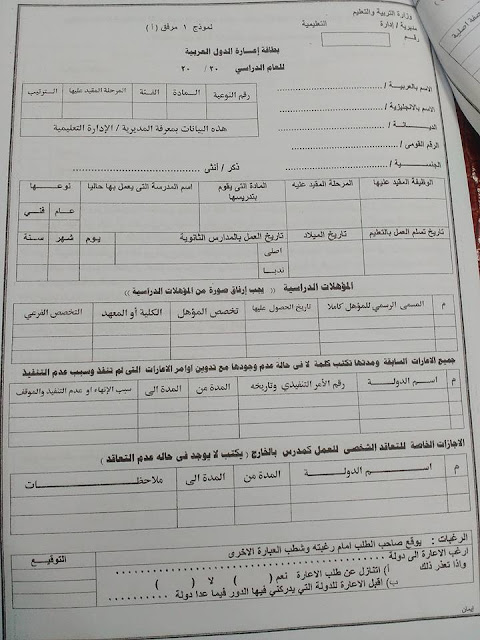 وزارة التربية والتعليم
مديرية / إدارة التعليمية نموذج ١ مرفق (أ)
رقم
بطاقة إعارة الدول العربية
للعام الدراسي ٢٠ / ٢٠
الاسم بالعربية /
الاسم بالانجليزية /
الديـــانـــة /
الرقم القومى /
الجنسيـــة / ذكر / أنثى
رقم النوعية المــادة الفئة المرحلة المقيد عليها الترتيب
هذه البيانات بمعرفة المديرية / الإدارة التعليمية
الوظيفة المقيد عليها المرحلة المقيد عليه المادة التى يقوم بتدريسها اسم المدرسة التى يعمل بها حاليا نوعـــها
عــام فنـي
تاريخ تسلم العمل بالتعليم تاريخ الميلاد تاريخ العمل بالمدارس الثانوية يوم شهر سنة
اصلى
ندبـا
المؤهلات الدراسية (( يجب إرفاق صورة من المؤهلات الدراسية ))
م المسمى الرسمي للمؤهل كاملا تاريخ الحصول عليها تخصص المؤهل الكلية أو المعهد التخصص الفرعي
جميع الاعارات السابقة ومدتها تكتب كلمة لا فى حالة عدم وجودها مع تدوين اوامر الاعارات التى لم تنفذ وسبب عدم التنفيذ
م اســم الدولــة رقم الأمر التنفيذي وتاريخه المدة من المدة الى سبب الإنهاء او عدم التنفيذ والموقف
الاجازات الخاصة للتعاقد الشخصى للعمل كمدرس بالخارج ( يكتب لا يوجد فى حاله عدم التعاقد )
م اســـم الدولـــة المدة من المدة الى ملاحظـــات
الرغبات : يوقع صاحب الطلب امام رغبته وشطب العبارة الاخرى التوقيع
ارغب الاعارة الى دولة
واذا تعذر ذلك أ) اتنازل عن طلب الاعارة نعم ( ) لا ( )
ب) اقبل الاعارة للدولة التي يدركني فيها الدور فيما عدا دولة
إيمان